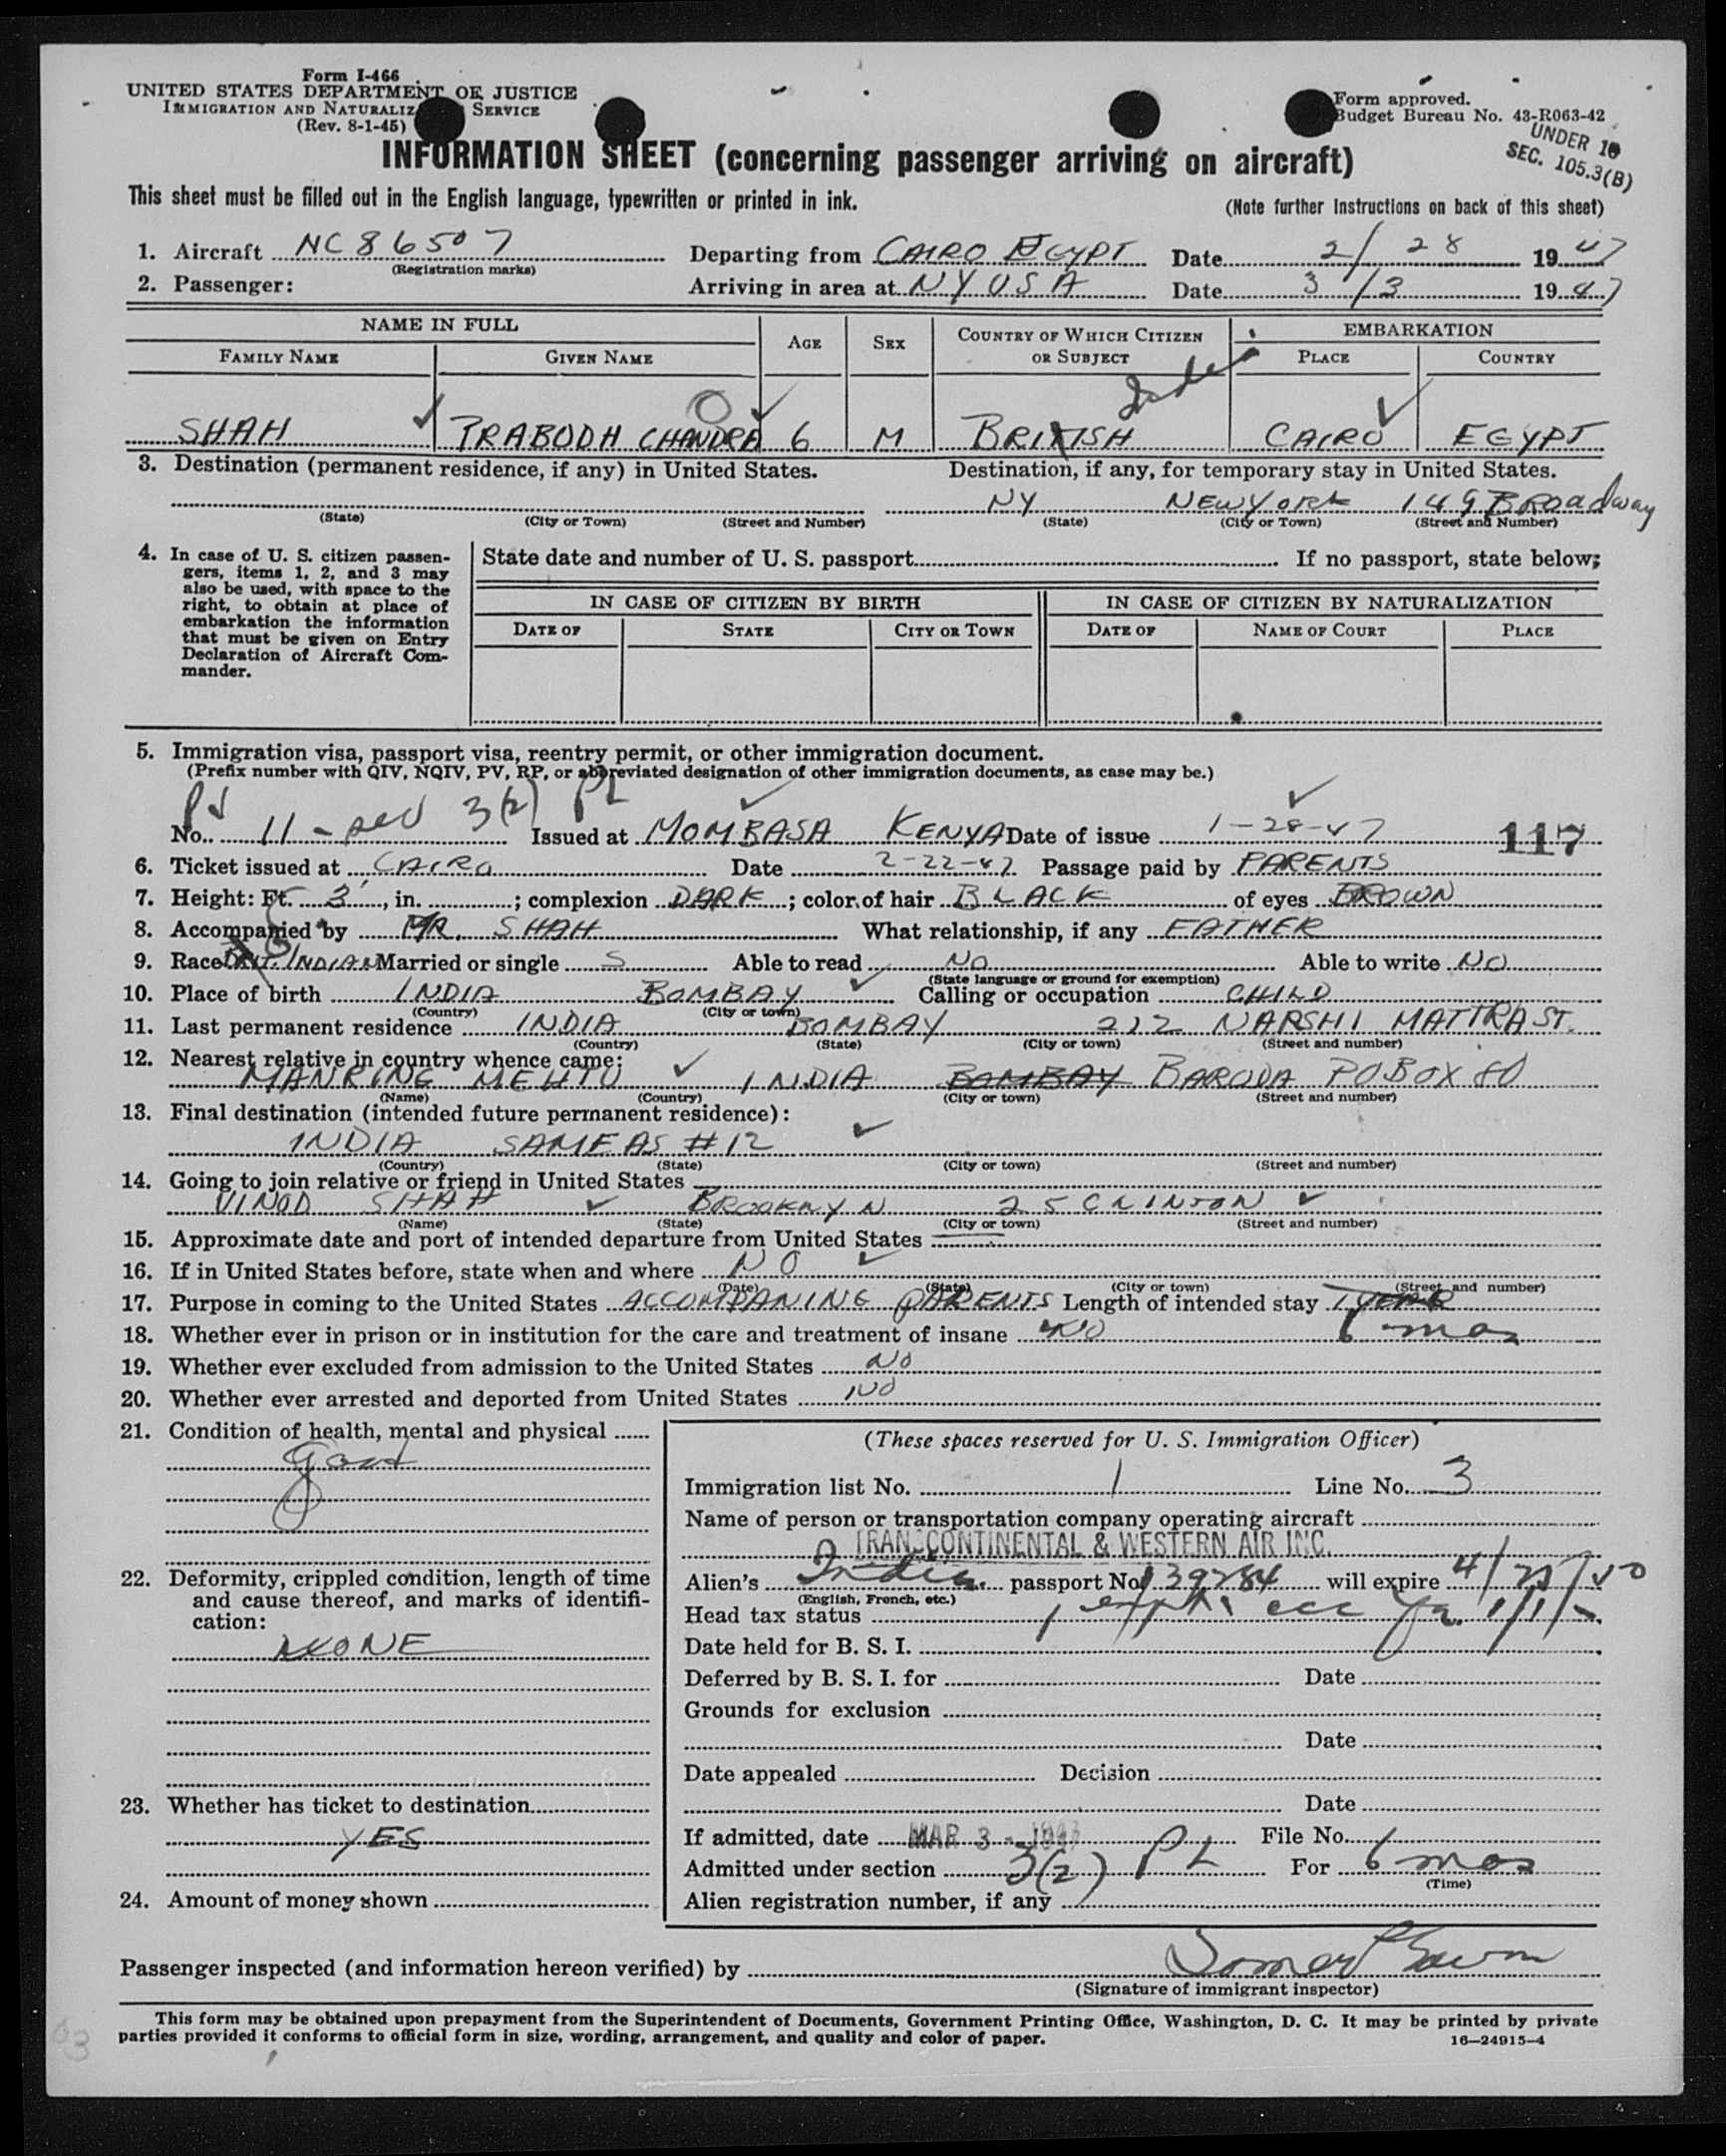 Form I-466
UNITED STATES DEPARTMENT OF JUSTICE
IMMIGRATION AND NATURALIZ SERVICE
(Rev. 8-1-45)
Form approved.
Budget Bureau No. 43-R063-42
UNDER 16
SEC. 105.3(B)
INFORMATION SHEET (concerning passenger arriving on aircraft)
This sheet must be filled out in the English language, typewritten or printed in ink.
(Note further Instructions on back of this sheet)
1. Aircraft NC86507 Departing from CAIRO EGYPT Date 2/28 1947
(Registration marks)
2. Passenger: Arriving in area at NY USA Date 3/3 1947
NAME IN FULL AGE SEX COUNTRY OF WHICH CITIZEN OR SUBJECT EMBARKATION
FAMILY NAME GIVEN NAME PLACE COUNTRY
SHAH PRABODH CHANDRA 6 M BRITISH CAIRO EGYPT
3. Destination (permanent residence, if any) in United States. Destination, if any, for temporary stay in United States.
NY NEW YORK 149 BROADWAY
(State) (City or Town) (Street and Number) (State) (City or Town) (Street and Number)
4. In case of U. S. citizen passen-
gers, items 1, 2, and 3 may
also be used, with space to the
right, to obtain at place of
embarkation the information
that must be given on Entry
Declaration of Aircraft Com-
mander.
State date and number of U. S. passport If no passport, state below:
IN CASE OF CITIZEN BY BIRTH IN CASE OF CITIZEN BY NATURALIZATION
DATE OF STATE CITY OR TOWN DATE OF NAME OF COURT PLACE
5. Immigration visa, passport visa, reentry permit, or other immigration document.
(Prefix number with QIV, NQIV, PV, RP, or abbreviated designation of other immigration documents, as case may be.)
PV 3(2) PL
No. 11 - sec Issued at MOMBASA KENYA Date of issue 1-28-47 117
6. Ticket issued at CAIRO Date 2-22-47 Passage paid by PARENTS
7. Height: Ft. 3', in. ; complexion DARK ; color of hair BLACK of eyes BROWN
8. Accompanied by MR. SHAH What relationship, if any FATHER
9. Race INDIAN Married or single S Able to read NO Able to write NO
(State language or ground for exemption)
10. Place of birth INDIA BOMBAY Calling or occupation CHILD
(Country) (City or town)
11. Last permanent residence INDIA BOMBAY 212 NARSHI MATTRA ST.
(Country) (State) (City or town) (Street and number)
12. Nearest relative in country whence came:
INDIA BOMBAY BARODA PO BOX 80
(Name) (Country) (City or town) (Street and number)
13. Final destination (intended future permanent residence):
INDIA SAME AS #12
(Country) (State) (City or town) (Street and number)
14. Going to join relative or friend in United States
VINOD SHAH BROOKLYN 25 CLINTON
(Name) (State) (City or town) (Street and number)
15. Approximate date and port of intended departure from United States
16. If in United States before, state when and where NO
(Date) (State) (City or town) (Street and number)
17. Purpose in coming to the United States ACCOMPANING PARENTS Length of intended stay 1 YEAR
18. Whether ever in prison or in institution for the care and treatment of insane NO 6 mos
19. Whether ever excluded from admission to the United States NO
20. Whether ever arrested and deported from United States NO
21. Condition of health, mental and physical
good
22. Deformity, crippled condition, length of time
and cause thereof, and marks of identifi-
cation:
NONE
23. Whether has ticket to destination
YES
24. Amount of money shown
(These spaces reserved for U. S. Immigration Officer)
Immigration list No. 1 Line No. 3
Name of person or transportation company operating aircraft
TRANSCONTINENTAL & WESTERN AIR INC.
Alien's India passport No. 139284 will expire 4/25/50
(English, French, etc.)
Head tax status
Date held for B. S. I.
Deferred by B. S. I. for Date
Grounds for exclusion
Date
Date appealed Decision
Date
If admitted, date MAR 3 - 1947 File No.
Admitted under section 3(2) PL For 6 mos
(Time)
Alien registration number, if any
Passenger inspected (and information hereon verified) by
(Signature of immigrant inspector)
This form may be obtained upon prepayment from the Superintendent of Documents, Government Printing Office, Washington, D. C. It may be printed by private
parties provided it conforms to official form in size, wording, arrangement, and quality and color of paper.
16—24915-4